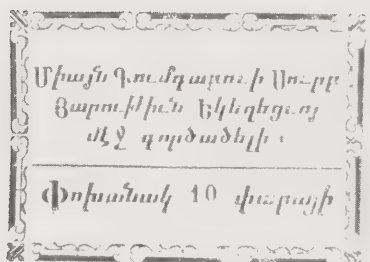 Միայն Գումգաբուի Սուրբ
Յարութիւն Եկեղեցւոյ
մէջ գործածելի։
Փոխանակ 10 փարայի